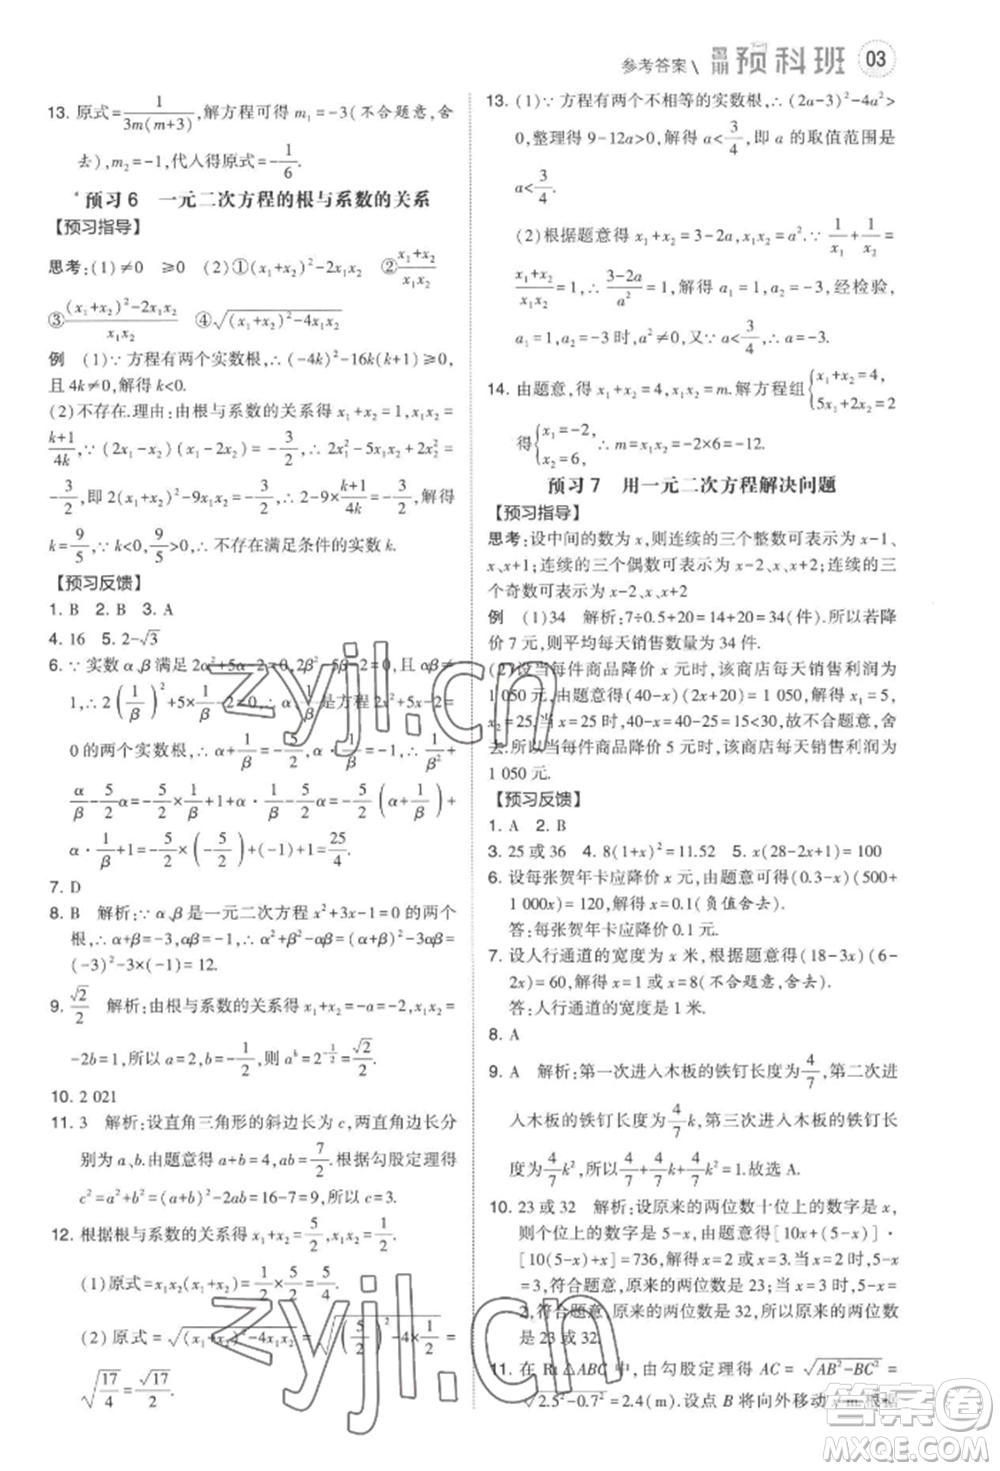 参考答案\ 暑期 预科班 03
13. 原式=1/3m(m+3),解方程得 m₁=-3(不合题意,舍
去),m₂=-1,代人得原式=-1/6.
预习6 一元二次方程的根与系数的关系
【预习指导】
思考:(1)≠0 ≥0 (2)①(x₁+x₂)²-2x₁x₂ ②(x₁+x₂)/x₁x₂
③((x₁+x₂)²-2x₁x₂)/x₁x₂ ④√((x₁+x₂)²-4x₁x₂)
例 (1)∵方程有两个实数根,∴(-4k)²-16k(k+1)≥0,
且 4k≠0,解得 k<0.
(2)不存在.理由:由根与系数的关系得 x₁+x₂=1,x₁x₂=
(k+1)/4k,∵(2x₁-x₂)(x₁-2x₂)=-3/2,∴2x₁²-5x₁x₂+2x₂²=
-3/2,即 2(x₁+x₂)²-9x₁x₂=-3/2,∴2-9(k+1)/4k=-3/2,解得
k=9/5.∵k<0,9/5>0,∴不存在满足条件的实数 k.
【预习反馈】
1. B 2. B 3. A
4. 16 5. 2-√3
6. ∵实数 α,β 满足 2α²+5α-2=0,2β²-5β-2=0,且 αβ≠
1,∴2(1/β)²+5×1/β-2=0,∴α,1/β是方程 2x²+5x-2=
0的两个实数根,∴α+1/β=-5/2,α·1/β=-1,∴1/β²+
α/β-5/2α=1/β²-5/2α-1=-5/2(α+1/β)+
α·1/β=-5/2×(-5/2)+(-1)+(-1)=25/4.
7. D
8. B 解析:∵α,β是一元二次方程 x²+3x-1=0的两个
根,∴α+β=-3,αβ=-1,∴α²+β²-αβ=(α+β)²-3αβ=
(-3)²-3×(-1)=12.
9. √2/2 解析:由根与系数的关系得 x₁+x₂=-a=-2,x₁x₂=
-2b=1,所以 a=2,b=-1/2,则 aᵇ=2^(-1/2)=√2/2.
10. 2 021
11. 3 解析:设直角三角形的斜边长为 c,两直角边长分
别为 a、b.由题意得 a+b=4,ab=7/2.根据勾股定理得
c²=a²+b²=(a+b)²-2ab=16-7=9,所以 c=3.
12. 根据根与系数的关系得 x₁+x₂=5/2,x₁x₂=1/2.
(1)原式=x₁x₂(x₁+x₂)=1/2×5/2=5/4.
(2)原式=√((x₁+x₂)²-4x₁x₂)=√((5/2)²-4×1/2)=
√(17/4)=√17/2.
13. (1)∵方程有两个不相等的实数根,∴(2a-3)²-4a²>
0,整理得 9-12a>0,解得 a<3/4,即 a 的取值范围是
a<3/4.
(2)根据题意得 x₁+x₂=3-2a,x₁x₂=a².∵1/x₁+1/x₂=
(x₁+x₂)/x₁x₂=1,∴(3-2a)/a²=1,∴a₁=1,a₂=-3,经检验,
a₁=1,a₂=-3时,a²≠0,又∵a<3/4,∴a=-3.
14. 由题意,得 x₁+x₂=4,x₁x₂=m.解方程组{x₁+x₂=4, 5x₁+2x₂=2
得{x₁=-2, x₂=6, ∴m=x₁x₂=-2×6=-12.
预习7 用一元二次方程解决问题
【预习指导】
思考:设中间的数为 x,则连续的三个整数可表示为 x-1、
x、x+1;连续的三个偶数可表示为 x-2、x、x+2;连续的三
个奇数可表示为 x-2、x、x+2
例 (1)34 解析:7÷0.5+20=14+20=34(件).所以若降
价7元,则平均每天销售数量为34件.
(2)设当每件商品降价 x 元时,该商店每天销售利润为
1 050元.根据题意得(40-x)(2x+20)=1 050,解得 x₁=5,
x₂=25,当 x=25时,40-x=40-25=15<20,故不合题意,舍
去.所以当每件商品降价5元时,该商店每天销售利润为
1 050元.
【预习反馈】
1. A 2. B
3. 25或36 4. 8(1+x)²=11.52 5. x(28-2x+1)=100
6. 设每张贺年卡应降价 x 元,由题意可得(0.3-x)(500+
1 000x)=120,解得 x=0.1(负值舍去).
答:每张贺年卡应降价0.1元.
7. 设人行通道的宽度为 x 米,根据题意得(18-3x)(6-
2x)=60,解得 x=1或 x=8(不合题意,舍去).
答:人行通道的宽度是1米.
8. A
9. A 解析:第一次进入木板的铁钉长度为4/7,第二次进
入木板的铁钉长度为4/7k,第三次进入木板的铁钉长
度为4/7k²,所以4/7+4/7k+4/7k²=1.故选A.
10. 23或32 解析:设原来的两位数十位上的数字是 x,
则个位上的数字是 5-x,由题意得[10x+(5-x)]·
[10(5-x)+x]=736,解得 x=2或 x=3;当 x=2时,5-x
=3,符合题意,原来的两位数是23;当 x=3时,5-x=
2,符合题意,原来的两位数是32,所以原来的两位数
是23或32.
11. 在 Rt△ABC 中,由勾股定理得 AC=√(AB²-BC²)=
√(2.5²-0.7²)=2.4(m).设点 B 将向外移动 x m.根据
zyjl.cn
zyjl.cn
答案圈
MXQE.COM